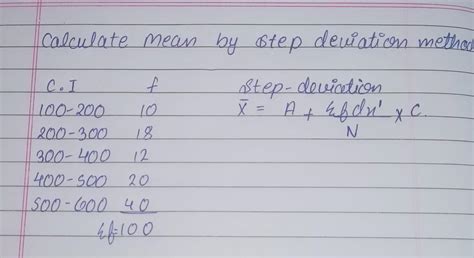 Calculate mean by step deviation method
C.I f Step-deviation
100-200 10 x̄ = A + Σfdx' × C.
200-300 18 N
300-400 12
400-500 20
500-600 40
Σf=100